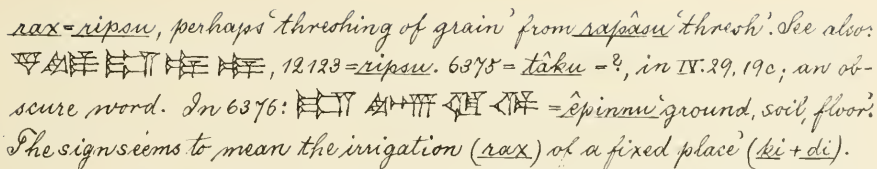 rax=ripsu, perhaps 'threshing of grain' from rapâsu 'thresh'. See also:
12123=ripsu. 6375=tâku=?, in IV.29,19c; an ob-
scure word. In 6376: =êpinnu 'ground, soil, floor'.
The sign seems to mean 'the irrigation (rax) of a fixed place' (ki+di).